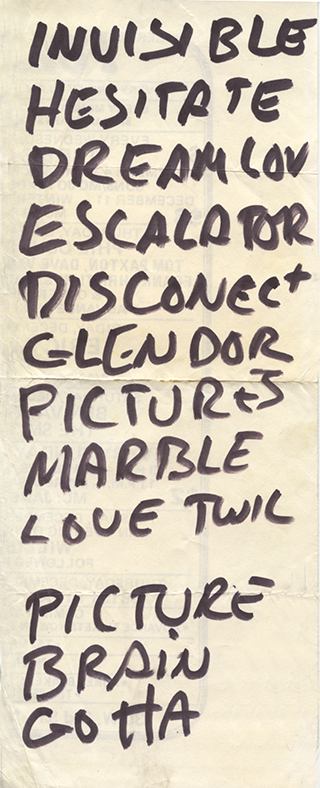 INVISIBLE
HESITATE
DREAM LOV
ESCALATOR
DISCONECT
GLENDOR
PICTURES
MARBLE
LOVE TWIL
PICTURE
BRAIN
GOTTA